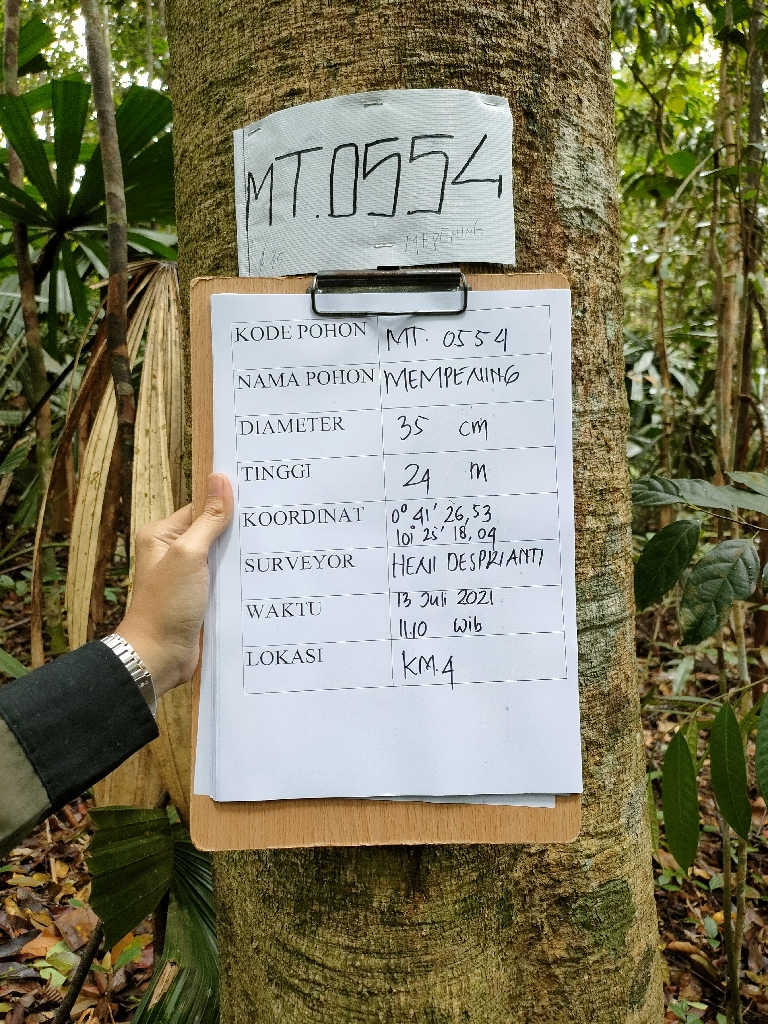 MT.0554
MEPENING
KODE POHON MT. 0554
NAMA POHON MEMPENING
DIAMETER 35 cm
TINGGI 24 m
KOORDINAT 0° 41' 26,53
101° 25' 18,04
SURVEYOR HENI DESPRIANTI
WAKTU 13 Juli 2021
11.10 wib
LOKASI KM.4